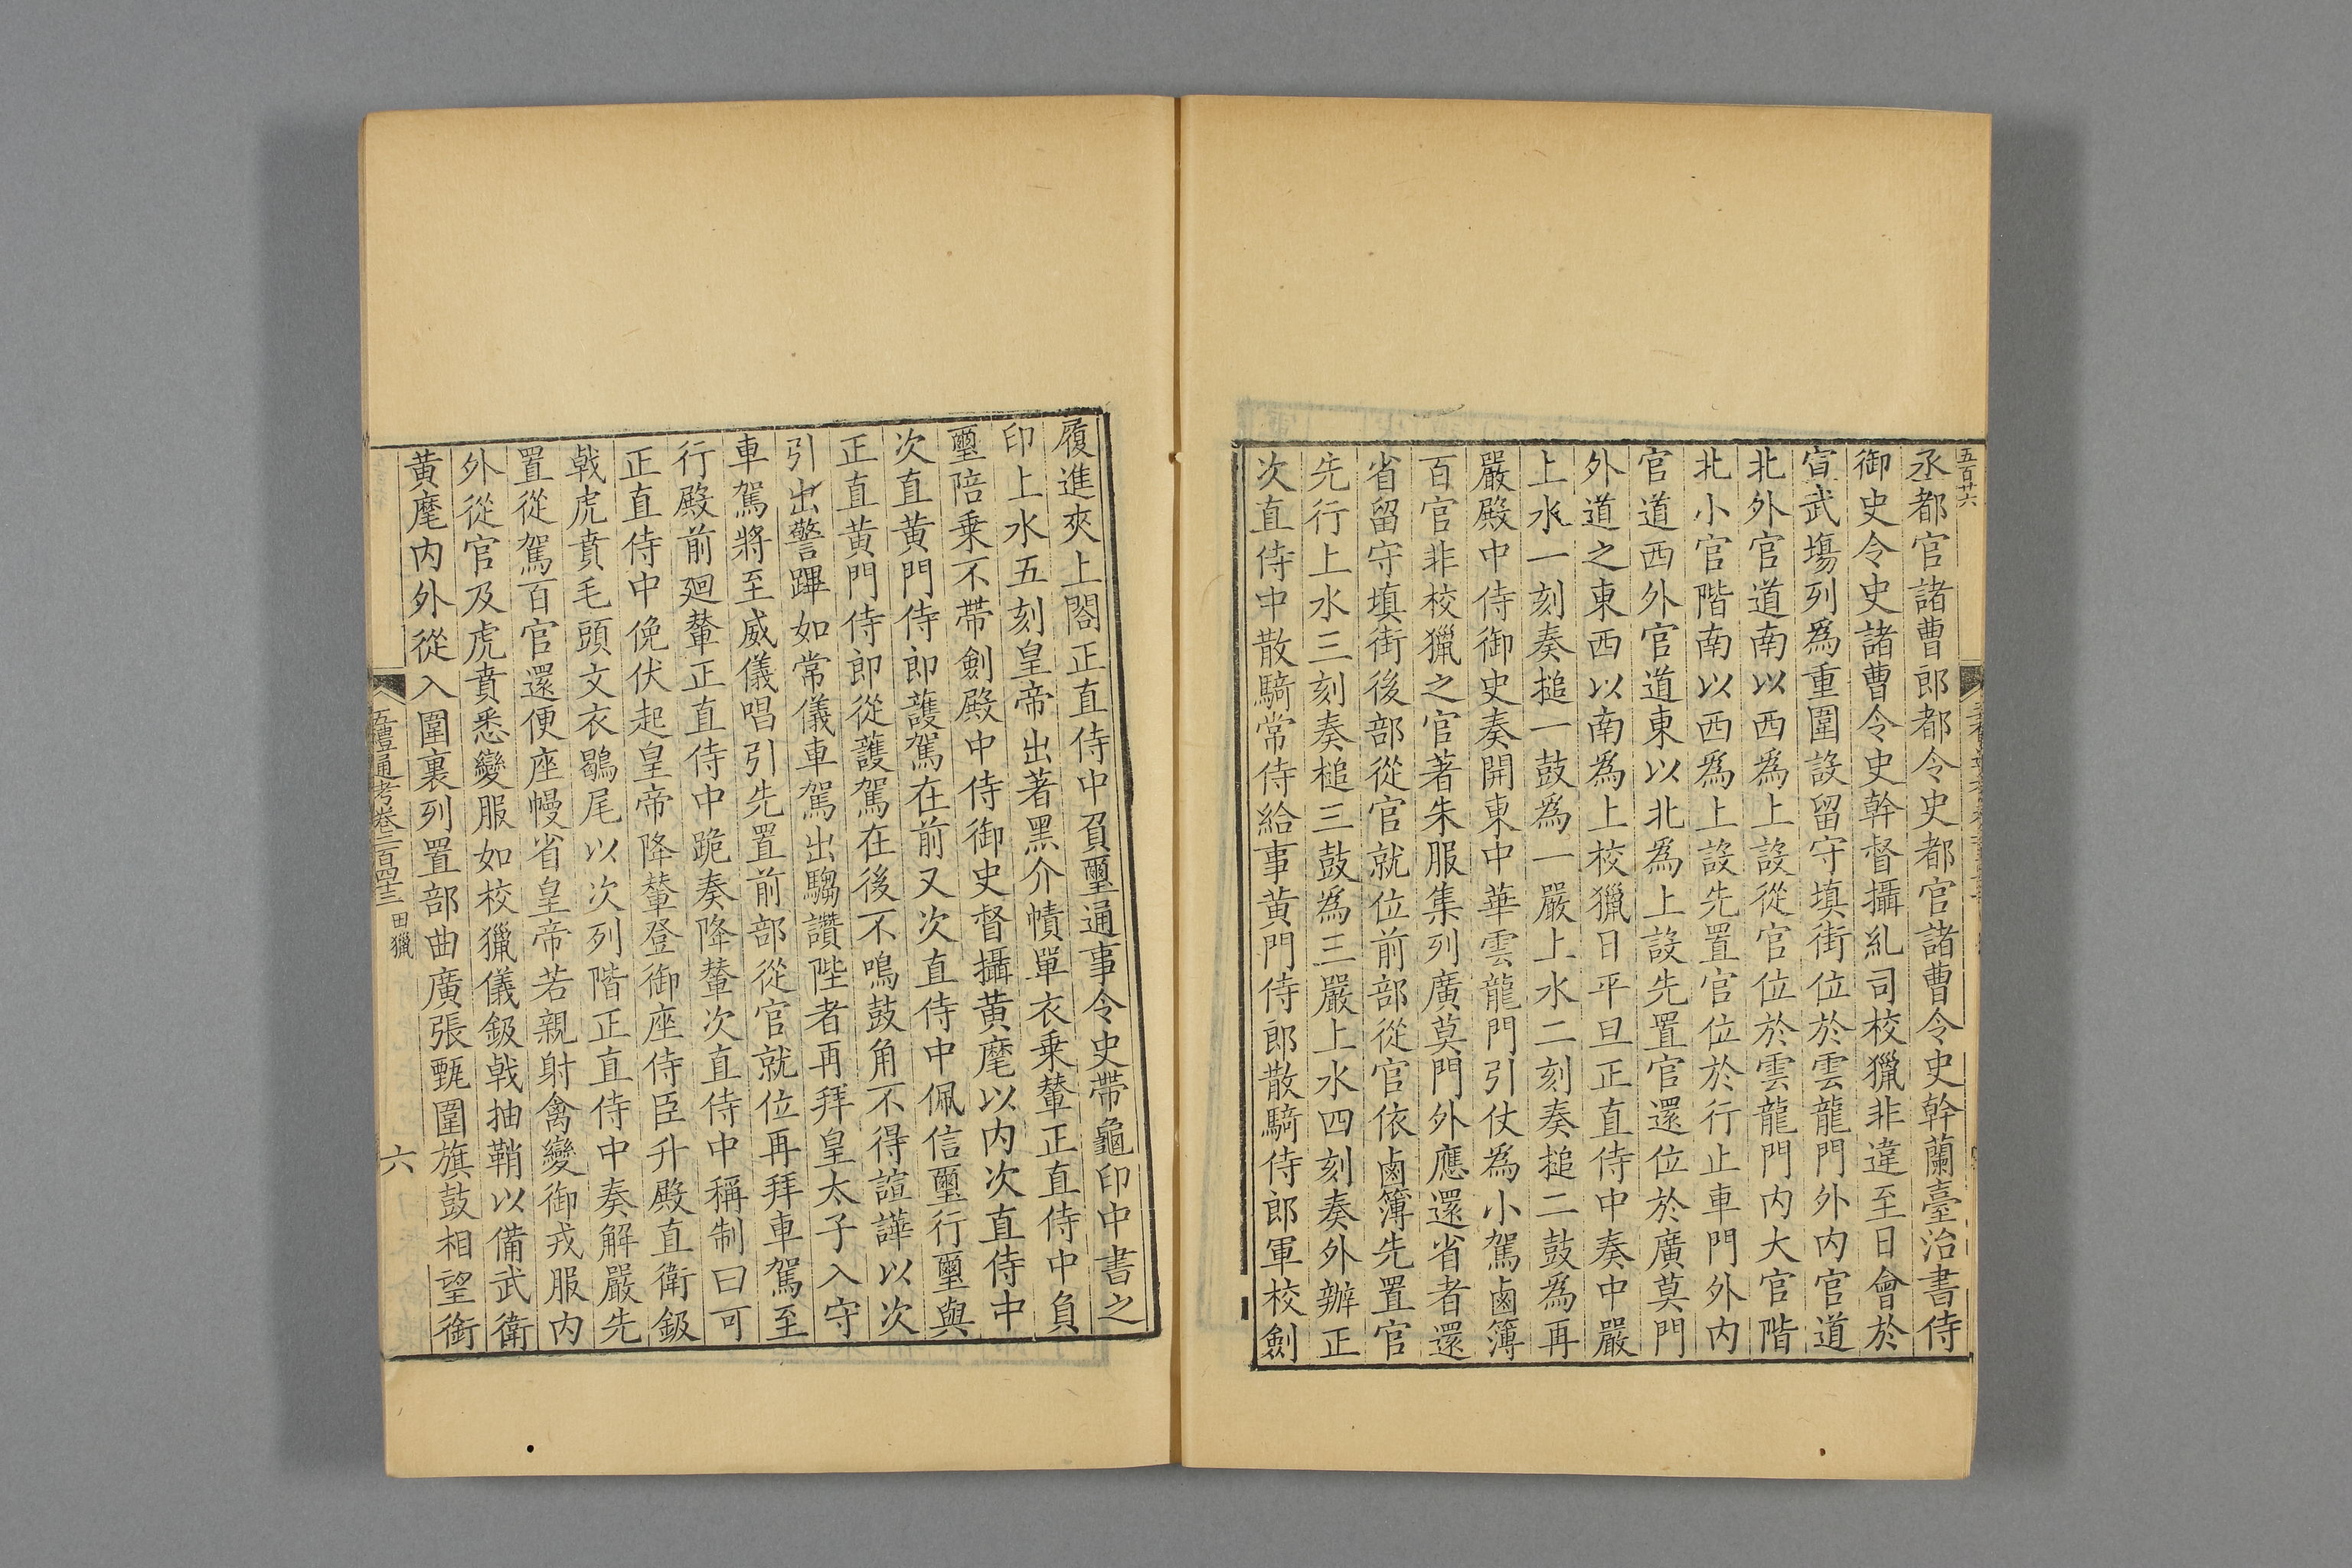 五百廿六
丞都官諸曹郎都令史都官諸曹令史幹蘭臺治書侍
御史令史諸曹令史幹督攝糺司校獵非違至日會於
宣武塲列為重圍設留守填街位於雲龍門外内官道
北外官道南以西為上設從官位於雲龍門内大官階
北小官階南以西為上設先置官位於行止車門外内
官道西外官道東以北為上設先置官還位於廣莫門
外道之東西以南為上校獵日平旦正直侍中奏中嚴
上水一刻奏搥一鼓為一嚴上水二刻奏搥二鼓為再
嚴殿中侍御史奏開東中華雲龍門引仗為小駕鹵簿
百官非校獵之官著朱服集列廣莫門外應還省者還
省留守填街後部從官就位前部從官依鹵簿先置官
先行上水三刻奏槌三鼓為三嚴上水四刻奏外辦正
次直侍中散騎常侍給事黃門侍郎散騎侍郎軍校劍
履進夾上閤正直侍中負璽通事令史帶龜印中書之
印上水五刻皇帝出著黑介幘單衣乗輦正直侍中負
璽陪乗不帶劍殿中侍御史督攝黃麾以内次直侍中
次直黃門侍郎護駕在前又次直侍中佩信璽行璽與
正直黃門侍郎從護駕在後不鳴鼓角不得諠譁以次
引出警蹕如常儀車駕出騶讚陛者再拜皇太子入守
車駕將至威儀唱引先置前部從官就位再拜車駕至
行殿前廻輦正直侍中跪奏降輦次直侍中稱制曰可
正直侍中俛伏起皇帝降輦登御座侍臣升殿直衛鈒
戟虎賁毛頭文衣鶡尾以次列階正直侍中奏解嚴先
置從駕百官還便座幔省皇帝若親射禽變御戎服内
外從官及虎賁悉變服如校獵儀鈒戟抽鞘以備武衛
黃麾内外從入圍裏列置部曲廣張甄圍旗鼓相望銜
五禮通考卷二百四十三 田獵 六